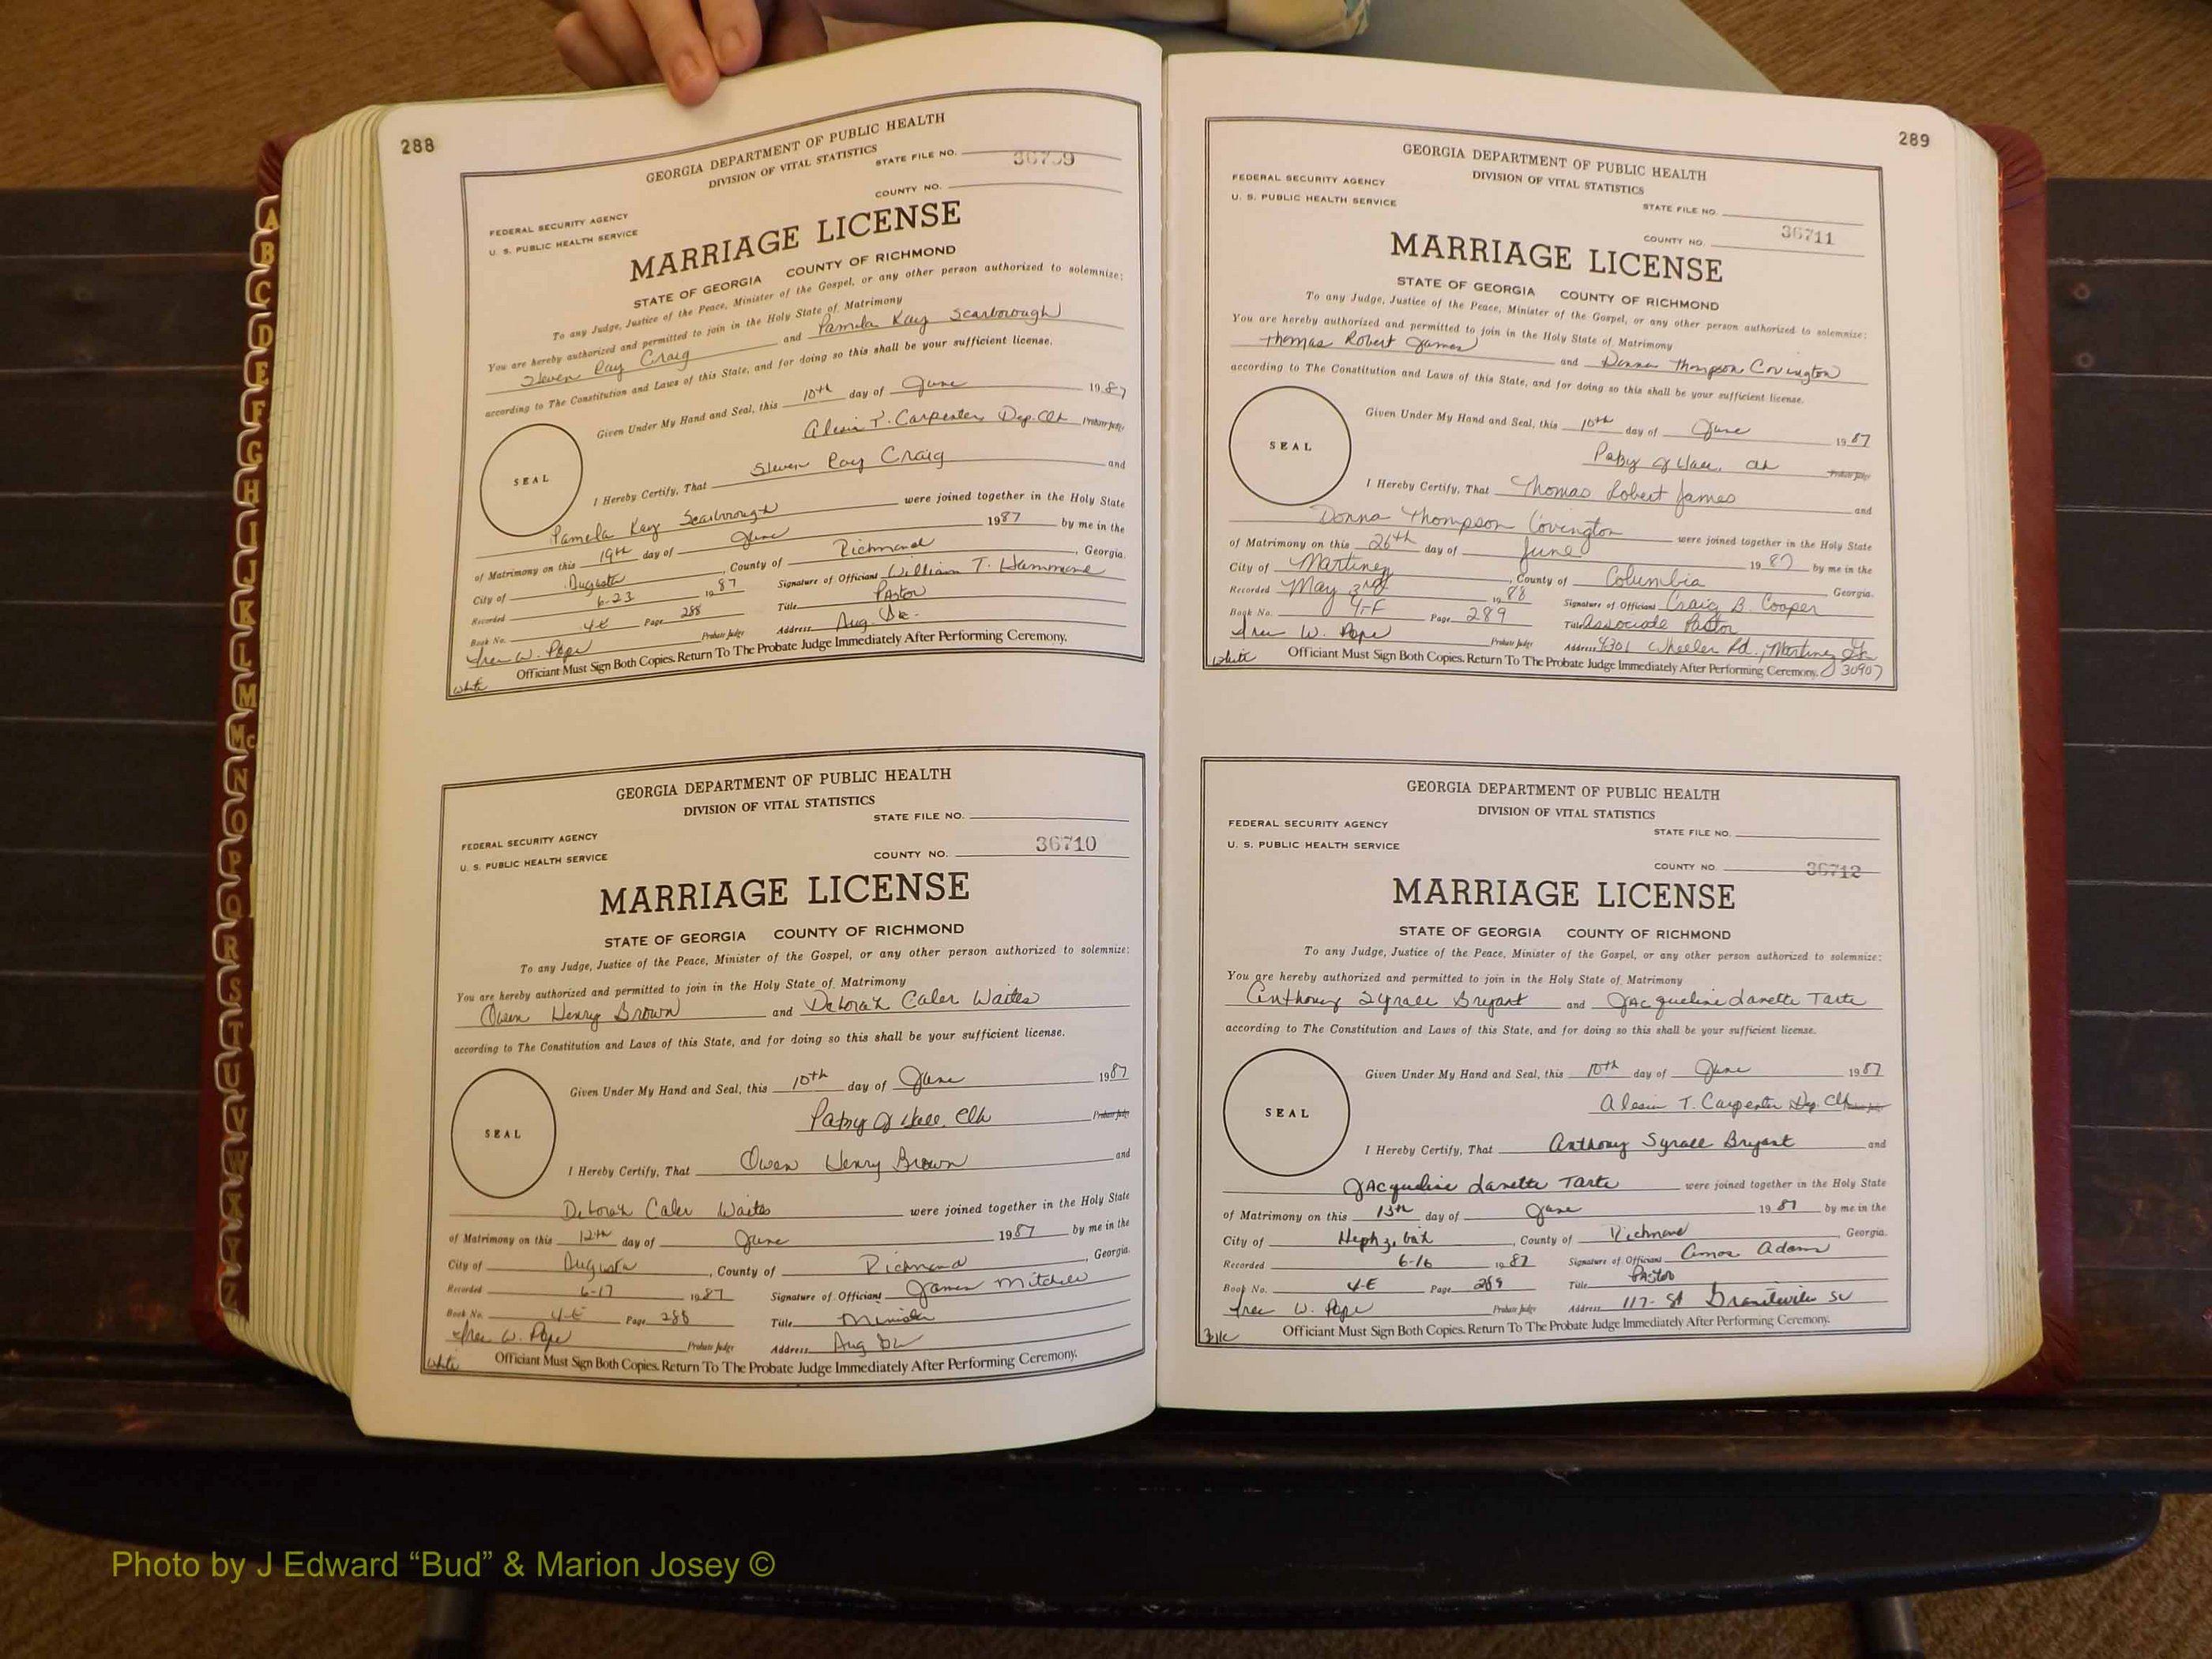 288
GEORGIA DEPARTMENT OF PUBLIC HEALTH
DIVISION OF VITAL STATISTICS
STATE FILE NO.
COUNTY NO.
FEDERAL SECURITY AGENCY
U. S. PUBLIC HEALTH SERVICE
MARRIAGE LICENSE
STATE OF GEORGIA COUNTY OF RICHMOND
To any Judge, Justice of the Peace, Minister of the Gospel, or any other person authorized to solemnize:
You are hereby authorized and permitted to join in the Holy State of Matrimony
Steven Ray Craig and Pamela Kay Scarborough
according to The Constitution and Laws of this State, and for doing so this shall be your sufficient license.
Given Under My Hand and Seal, this 10th day of June 1987
Alesia T. Carpenter Dep. Clk Probate Judge
SEAL
I Hereby Certify, That Steven Ray Craig and
Pamela Kay Scarborough were joined together in the Holy State
of Matrimony on this 19th day of June 1987 by me in the
City of Augusta, County of Richmond, Georgia.
Recorded 6-23 1987 Signature of Officiant William T. Hammond
Book No. 4-E Page 288 Title Pastor
W. Pope Probate Judge Address Aug. Ga.
Officiant Must Sign Both Copies. Return To The Probate Judge Immediately After Performing Ceremony.
White
GEORGIA DEPARTMENT OF PUBLIC HEALTH
DIVISION OF VITAL STATISTICS
STATE FILE NO.
FEDERAL SECURITY AGENCY
U. S. PUBLIC HEALTH SERVICE
COUNTY NO. 36710
MARRIAGE LICENSE
STATE OF GEORGIA COUNTY OF RICHMOND
To any Judge, Justice of the Peace, Minister of the Gospel, or any other person authorized to solemnize:
You are hereby authorized and permitted to join in the Holy State of Matrimony
Owen Henry Brown and Deborah Caler Waites
according to The Constitution and Laws of this State, and for doing so this shall be your sufficient license.
Given Under My Hand and Seal, this 10th day of June 1987
Clk Probate Judge
SEAL
I Hereby Certify, That Owen Henry Brown and
Deborah Caler Waites were joined together in the Holy State
of Matrimony on this 12th day of June 1987 by me in the
City of Augusta, County of Richmond Georgia.
Recorded 6-17 1987 Signature of Officiant James Mitchell
Book No. 4-E Page 288 Title Minister
W. Pope Probate Judge Address Aug Ga
White Officiant Must Sign Both Copies. Return To The Probate Judge Immediately After Performing Ceremony.
289
GEORGIA DEPARTMENT OF PUBLIC HEALTH
DIVISION OF VITAL STATISTICS
FEDERAL SECURITY AGENCY
U. S. PUBLIC HEALTH SERVICE
STATE FILE NO.
COUNTY NO. 36711
MARRIAGE LICENSE
STATE OF GEORGIA COUNTY OF RICHMOND
To any Judge, Justice of the Peace, Minister of the Gospel, or any other person authorized to solemnize:
You are hereby authorized and permitted to join in the Holy State of Matrimony
Thomas Robert James and Donna Thompson Covington
according to The Constitution and Laws of this State, and for doing so this shall be your sufficient license.
Given Under My Hand and Seal, this 10th day of June 1987
Probate Judge
SEAL
I Hereby Certify, That Thomas Robert James and
Donna Thompson Covington were joined together in the Holy State
of Matrimony on this 26th day of June 1987 by me in the
City of Martinez, County of Columbia Georgia.
Recorded May 3rd 1988 Signature of Officiant Craig B. Cooper
Book No. 4-F Page 289 Title Associate Pastor
W. Pope Probate Judge Address Wheeler Rd., Martinez Ga 30907
White Officiant Must Sign Both Copies. Return To The Probate Judge Immediately After Performing Ceremony.
GEORGIA DEPARTMENT OF PUBLIC HEALTH
DIVISION OF VITAL STATISTICS
FEDERAL SECURITY AGENCY
STATE FILE NO.
U. S. PUBLIC HEALTH SERVICE
COUNTY NO. 36712
MARRIAGE LICENSE
STATE OF GEORGIA COUNTY OF RICHMOND
To any Judge, Justice of the Peace, Minister of the Gospel, or any other person authorized to solemnize:
You are hereby authorized and permitted to join in the Holy State of Matrimony
Anthony Syrall Bryant and Jacqueline Lanette Tarte
according to The Constitution and Laws of this State, and for doing so this shall be your sufficient license.
Given Under My Hand and Seal, this 10th day of June 1987
Alesia T. Carpenter Dep. Clk Probate Judge
SEAL
I Hereby Certify, That Anthony Syrall Bryant and
Jacqueline Lanette Tarte were joined together in the Holy State
of Matrimony on this 13th day of June 1987 by me in the
City of Hephzibah, County of Richmond, Georgia.
Recorded 6-16 1987 Signature of Officiant Amos Adams
Book No. 4-E Page 289 Title Pastor
W. Pope Probate Judge Address 117- St Graniteville SC
Officiant Must Sign Both Copies. Return To The Probate Judge Immediately After Performing Ceremony.
A
B
C
D
E
F
G
H
I
J
K
L
M
Mc
N
O
P
Q
R
S
T
U
V
W
X
Y
Z
Photo by J Edward “Bud” & Marion Josey ©